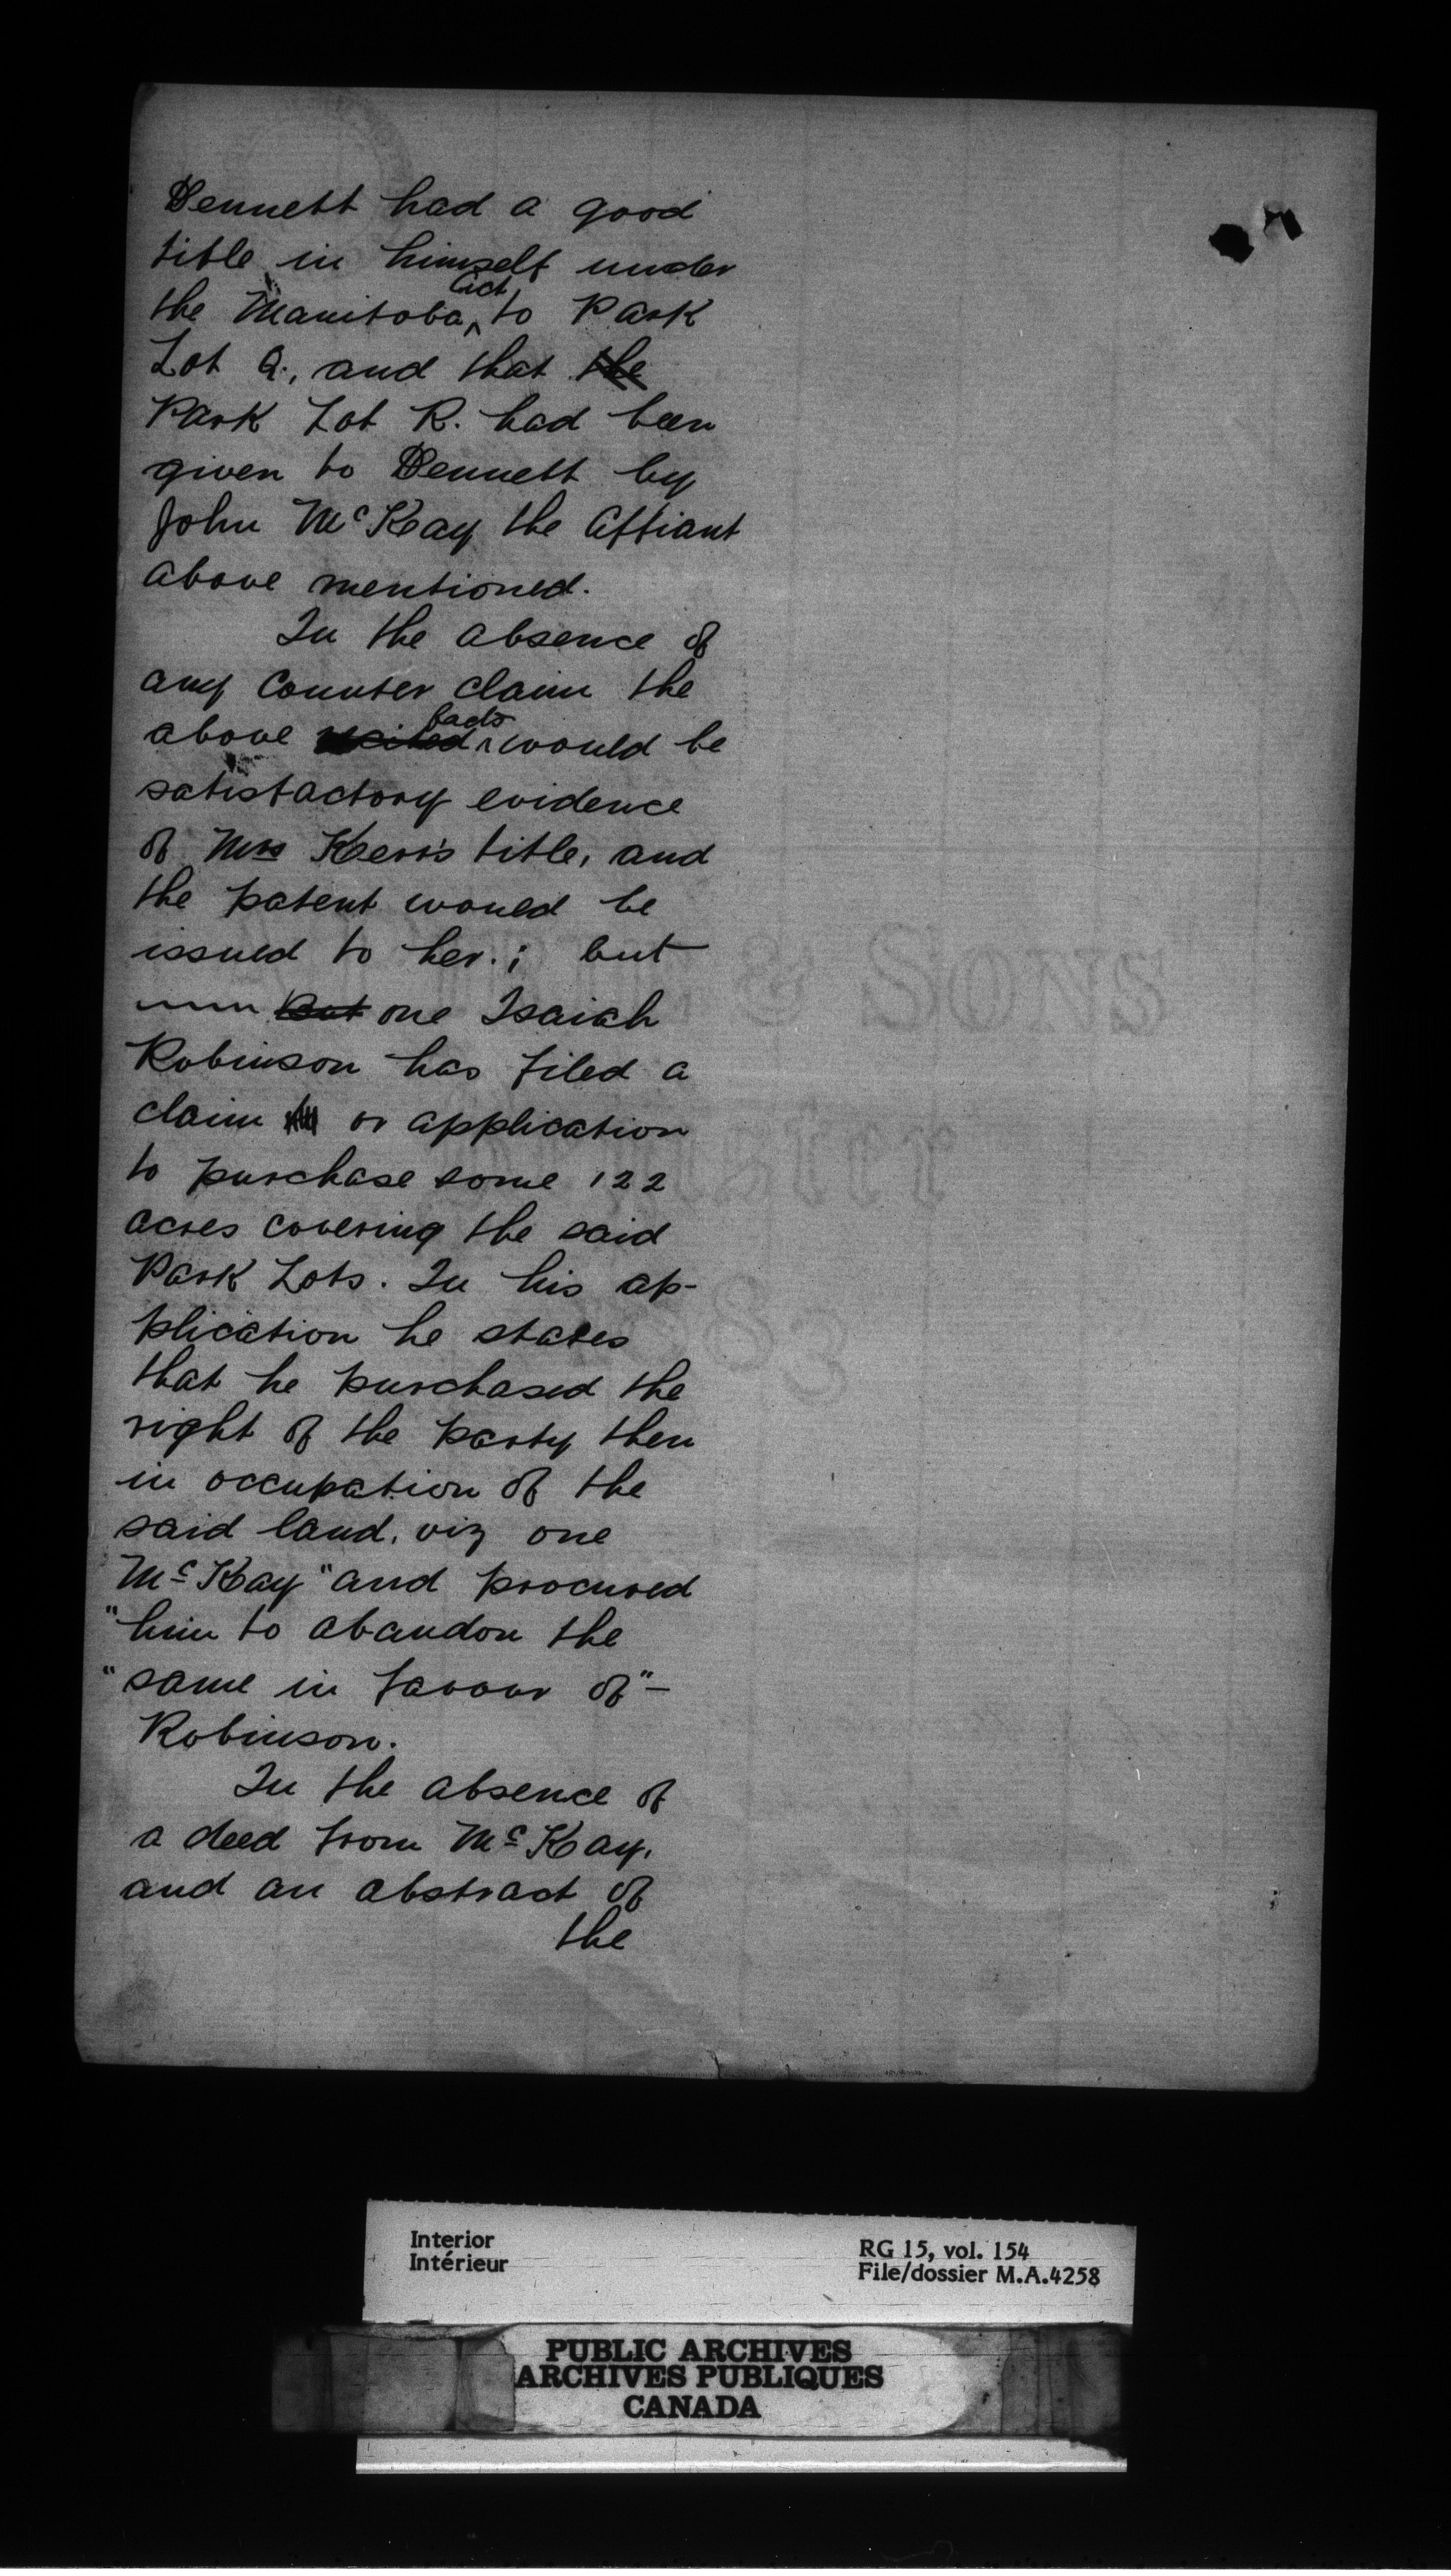 Bennett had a good
title in himself under
the Manitoba Act to Park
Lot Q., and that the
Park Lot R. had been
given to Bennett by
John McKay the affiant
above mentioned.
In the absence of
any counter claim the
above recited facts would be
satisfactory evidence
of Mrs Kerr's title, and
the patent would be
issued to her.; but
But one Isaiah
Robinson has filed a
claim or application
to purchase some 122
acres covering the said
Park Lots. In his ap-
plication he states
that he purchased the
right of the party then
in occupation of the
said land, viz one
McKay "and procured
"him to abandon the
"same in favour of"-
Robinson.
In the absence of
a deed from McKay,
and an abstract of
the
& SONS
Interior
Intérieur
RG 15, vol. 154
File/dossier M.A.4258
PUBLIC ARCHIVES
ARCHIVES PUBLIQUES
CANADA